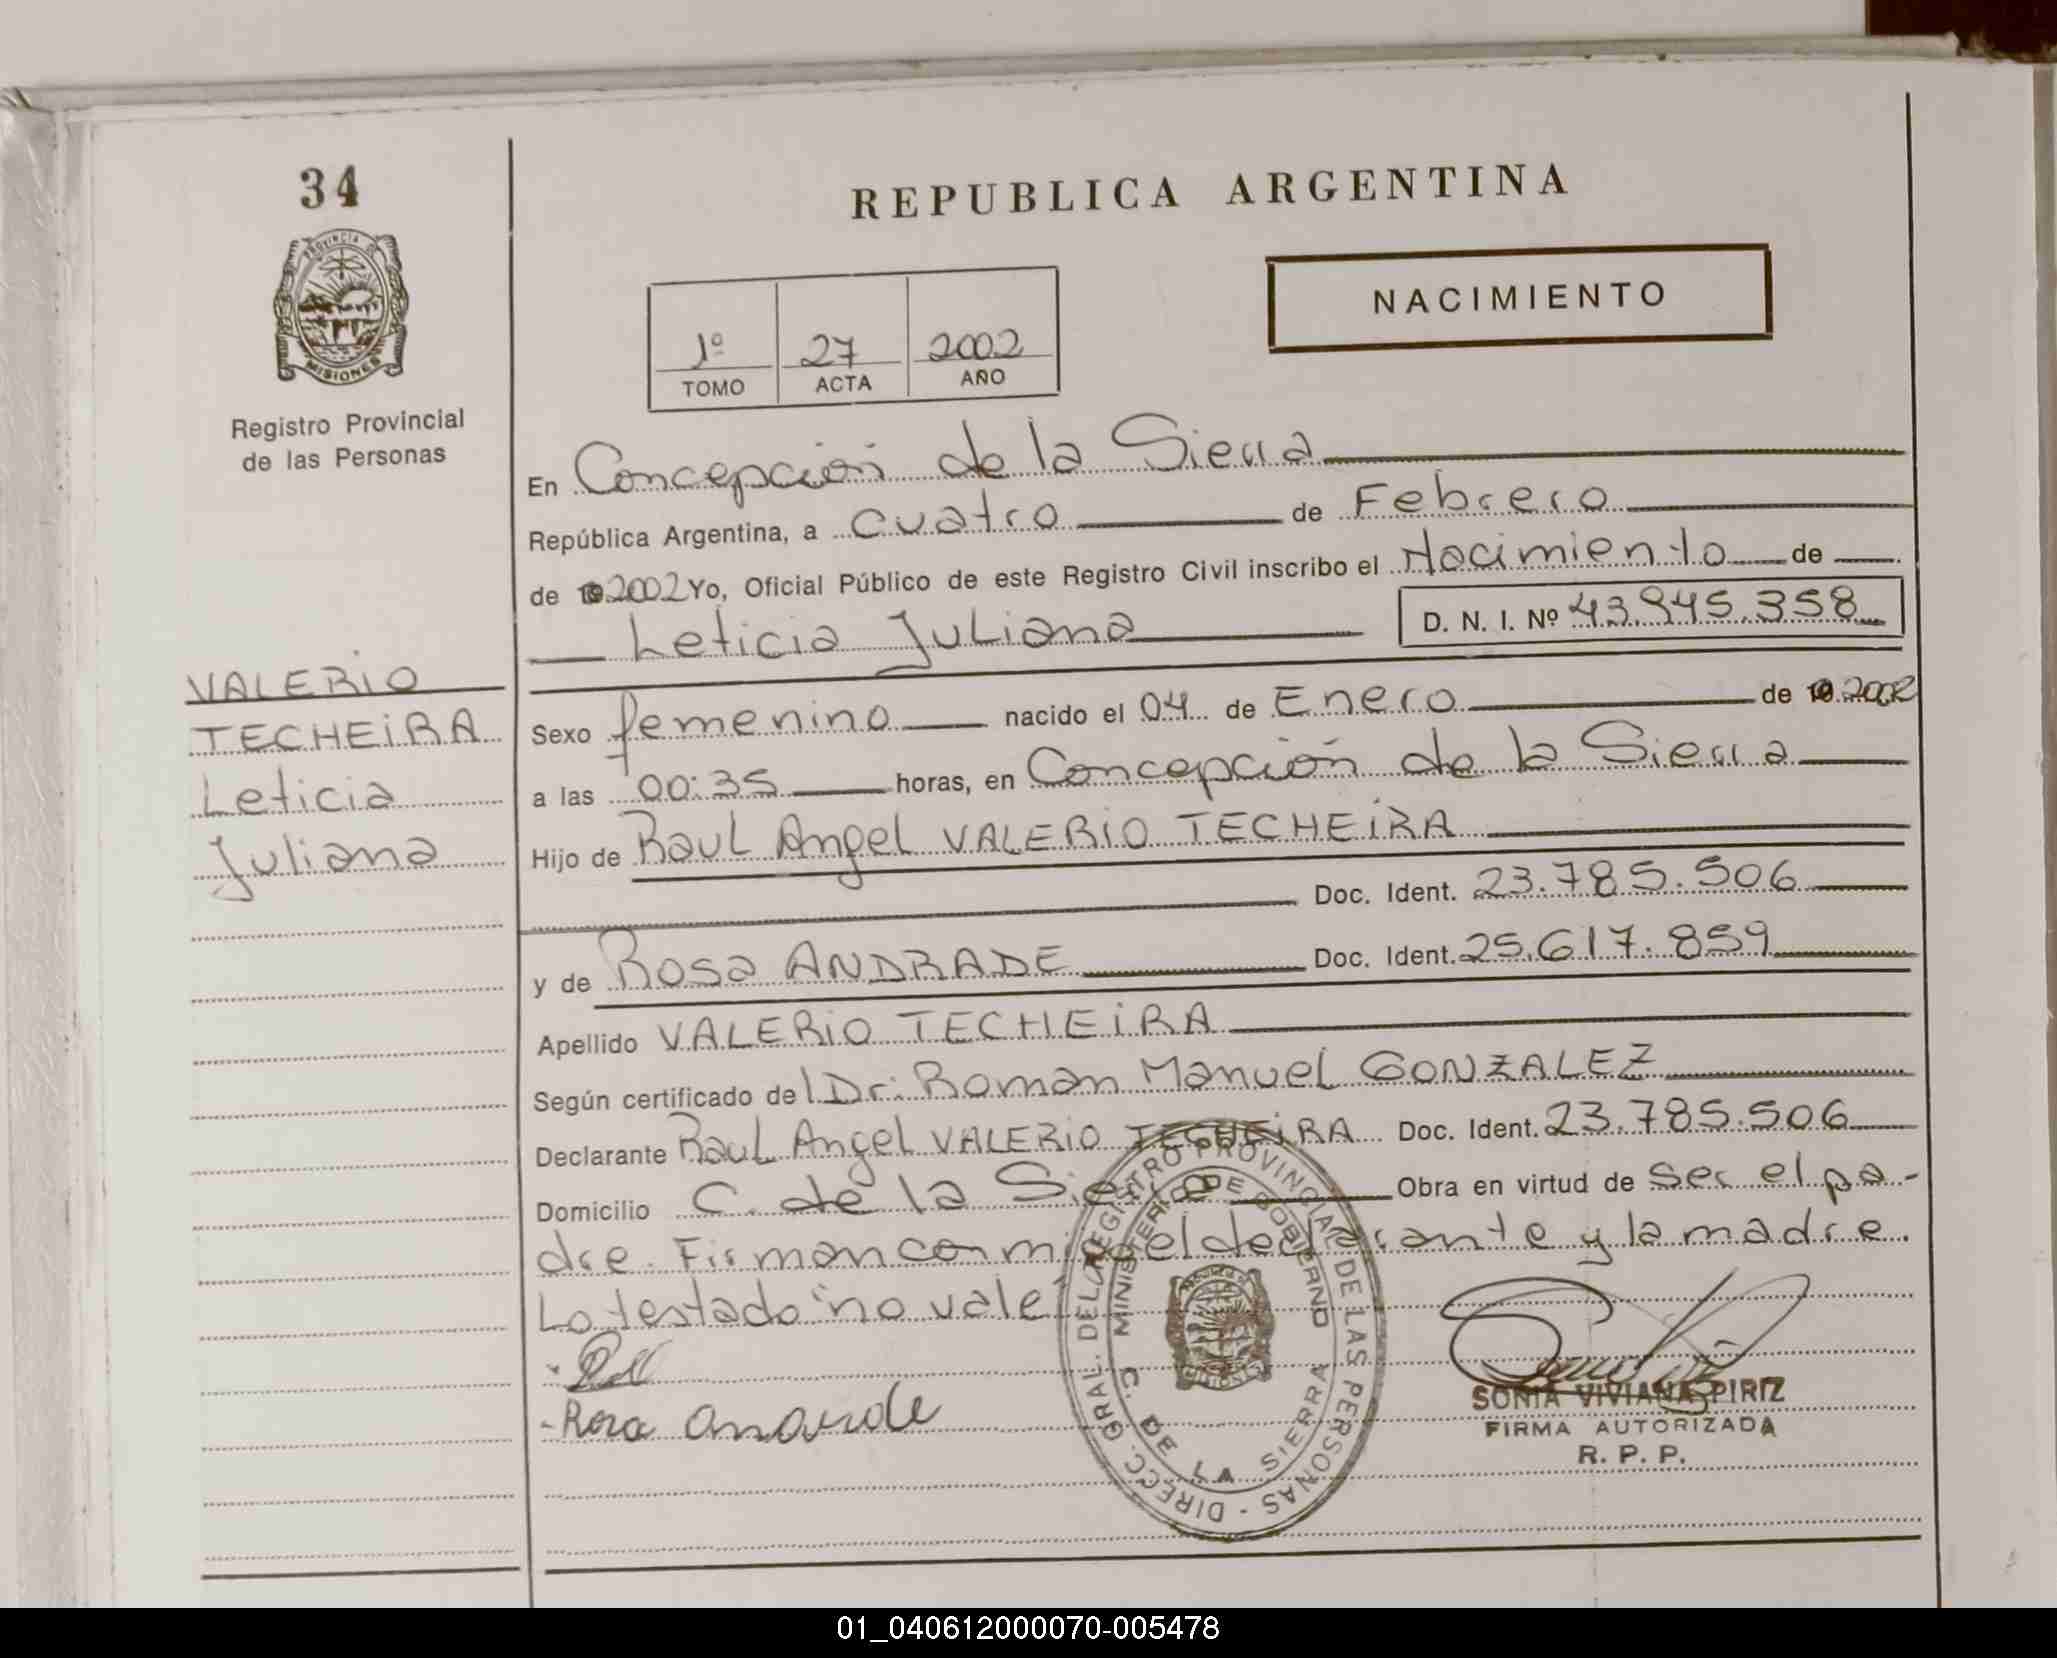 34
PROVINCIA DE
MISIONES
Registro Provincial
de las Personas
VALERIO
TECHEIRA
Leticia
Juliana
REPUBLICA ARGENTINA
NACIMIENTO
1º 27 2002
TOMO ACTA AÑO
En Concepción de la Sierra
República Argentina, a cuatro de Febrero
de 2002 Yo, Oficial Público de este Registro Civil inscribo el Nacimiento de
Leticia Juliana D. N. I. Nº 43.945.358
Sexo femenino nacido el 04 de Enero de 2002
a las 00:35 horas, en Concepción de la Sierra
Hijo de Raul Angel VALERIO TECHEIRA
Doc. Ident. 23.785.506
y de Rosa ANDRADE Doc. Ident. 25.617.859
Apellido VALERIO TECHEIRA
Según certificado del Dr. Roman Manuel GONZALEZ
Declarante Raul Angel VALERIO TECHEIRA Doc. Ident. 23.785.506
Domicilio C. de la Sierra Obra en virtud de ser el pa-
dre. Firman conmigo el declarante y la madre.
Lo testado "no vale"
- Rosa Andrade
DIRECC. GRAL. DEL REGISTRO PROVINCIAL DE LAS PERSONAS -
MINISTERIO DE GOBIERNO
C. DE LA SIERRA
MISIONES
SONIA VIVIANA PIRIZ
FIRMA AUTORIZADA
R. P. P.
01_040612000070-005478